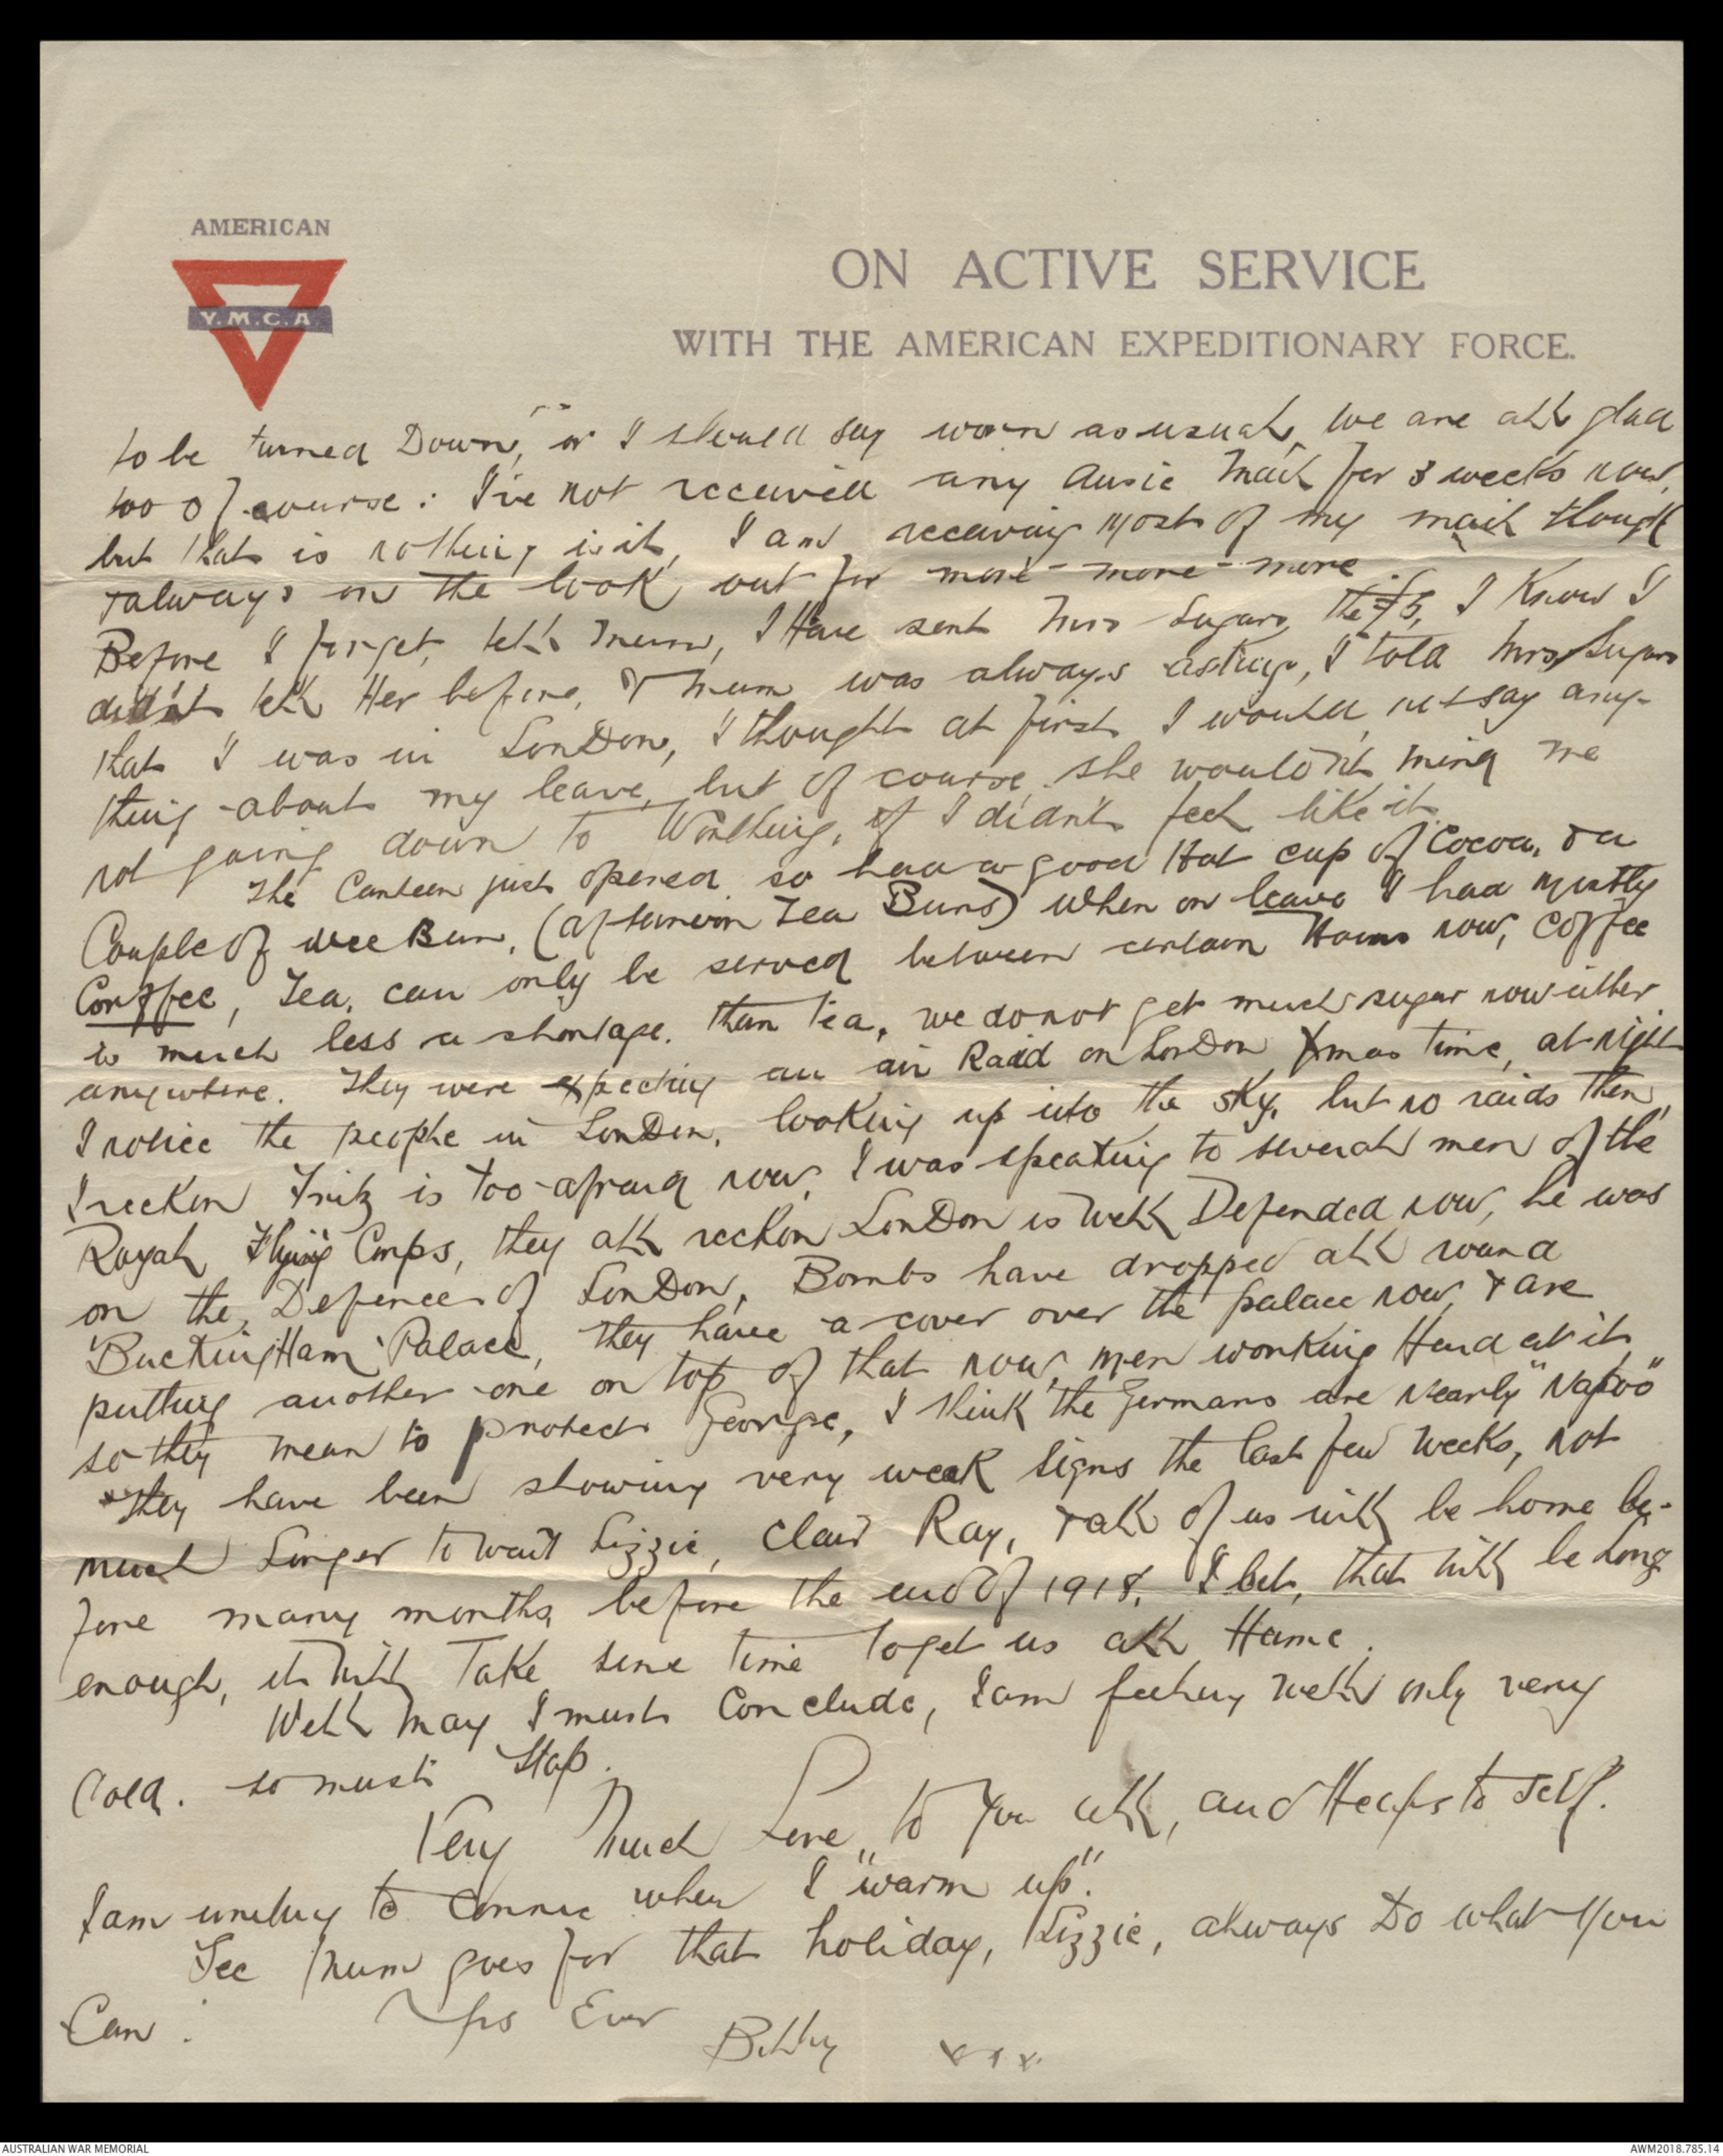 AMERICAN
Y.M.C.A.
ON ACTIVE SERVICE
WITH THE AMERICAN EXPEDITIONARY FORCE.
to be turned Down, or I should say worn as usual, we are all glad
too of course: I've not received any Ausie Mail for 3 weeks now,
but that is nothing is it, I am receiving most of my mail though
& always on the look out for more - more - more
Before I forget, tell Mum, I Have sent Mrs Sugars the £5, I know I
didn't tell Her before, & Mum was always asking, I told Mrs Sugars
that I was in LonDon, I thought at first I would not say any-
thing about my leave, but of course she wouldn't mind me
not going down to Worthing, if I didn't feel like it.
The Canteen just opened so had a good Hot cup of Cocoa, & a
Couple of wee Bun, (afternoon Tea Buns) when on leave I had mostly
Corffee, Tea, can only be served between certain Hours now, Coffee
is much less a shortage. than Tea, we do not get much sugar now either
anywhere. They were expecting an air Raid on LonDon Xmas time, at night
I notice the people in LonDon, looking up into the sky, but no raids then,
I reckon Fritz is too afraid now, I was speaking to several men of the
Royal Flying Corps, they all reckon LonDon is well Defended now, he was
on the Defences of LonDon, Bombs have dropped all round
BuckingHam Palace, they have a cover over the palace now, & are
putting another one on top of that now, men working Hard at it,
so they mean to protect George, I think the Germans are nearly "Napoo"
they have been showing very weak signs the last few weeks, not
much longer to wait Lizzie, Clair Ray, & all of us will be home be-
fore many months, before the end of 1918, I bet, that will be long
enough, it will take some time to get us all Home.
Well May I must conclude, I am feeling well only very
Cold. so must stop.
Very Much Love, to you all, and Heaps to self.
I am writing to Connie when I "warm up".
See Mum goes for that holiday, Lizzie, always Do what you
Can.
Yrs Ever
Bobby x x x
AUSTRALIAN WAR MEMORIAL
AWM2018.785.14